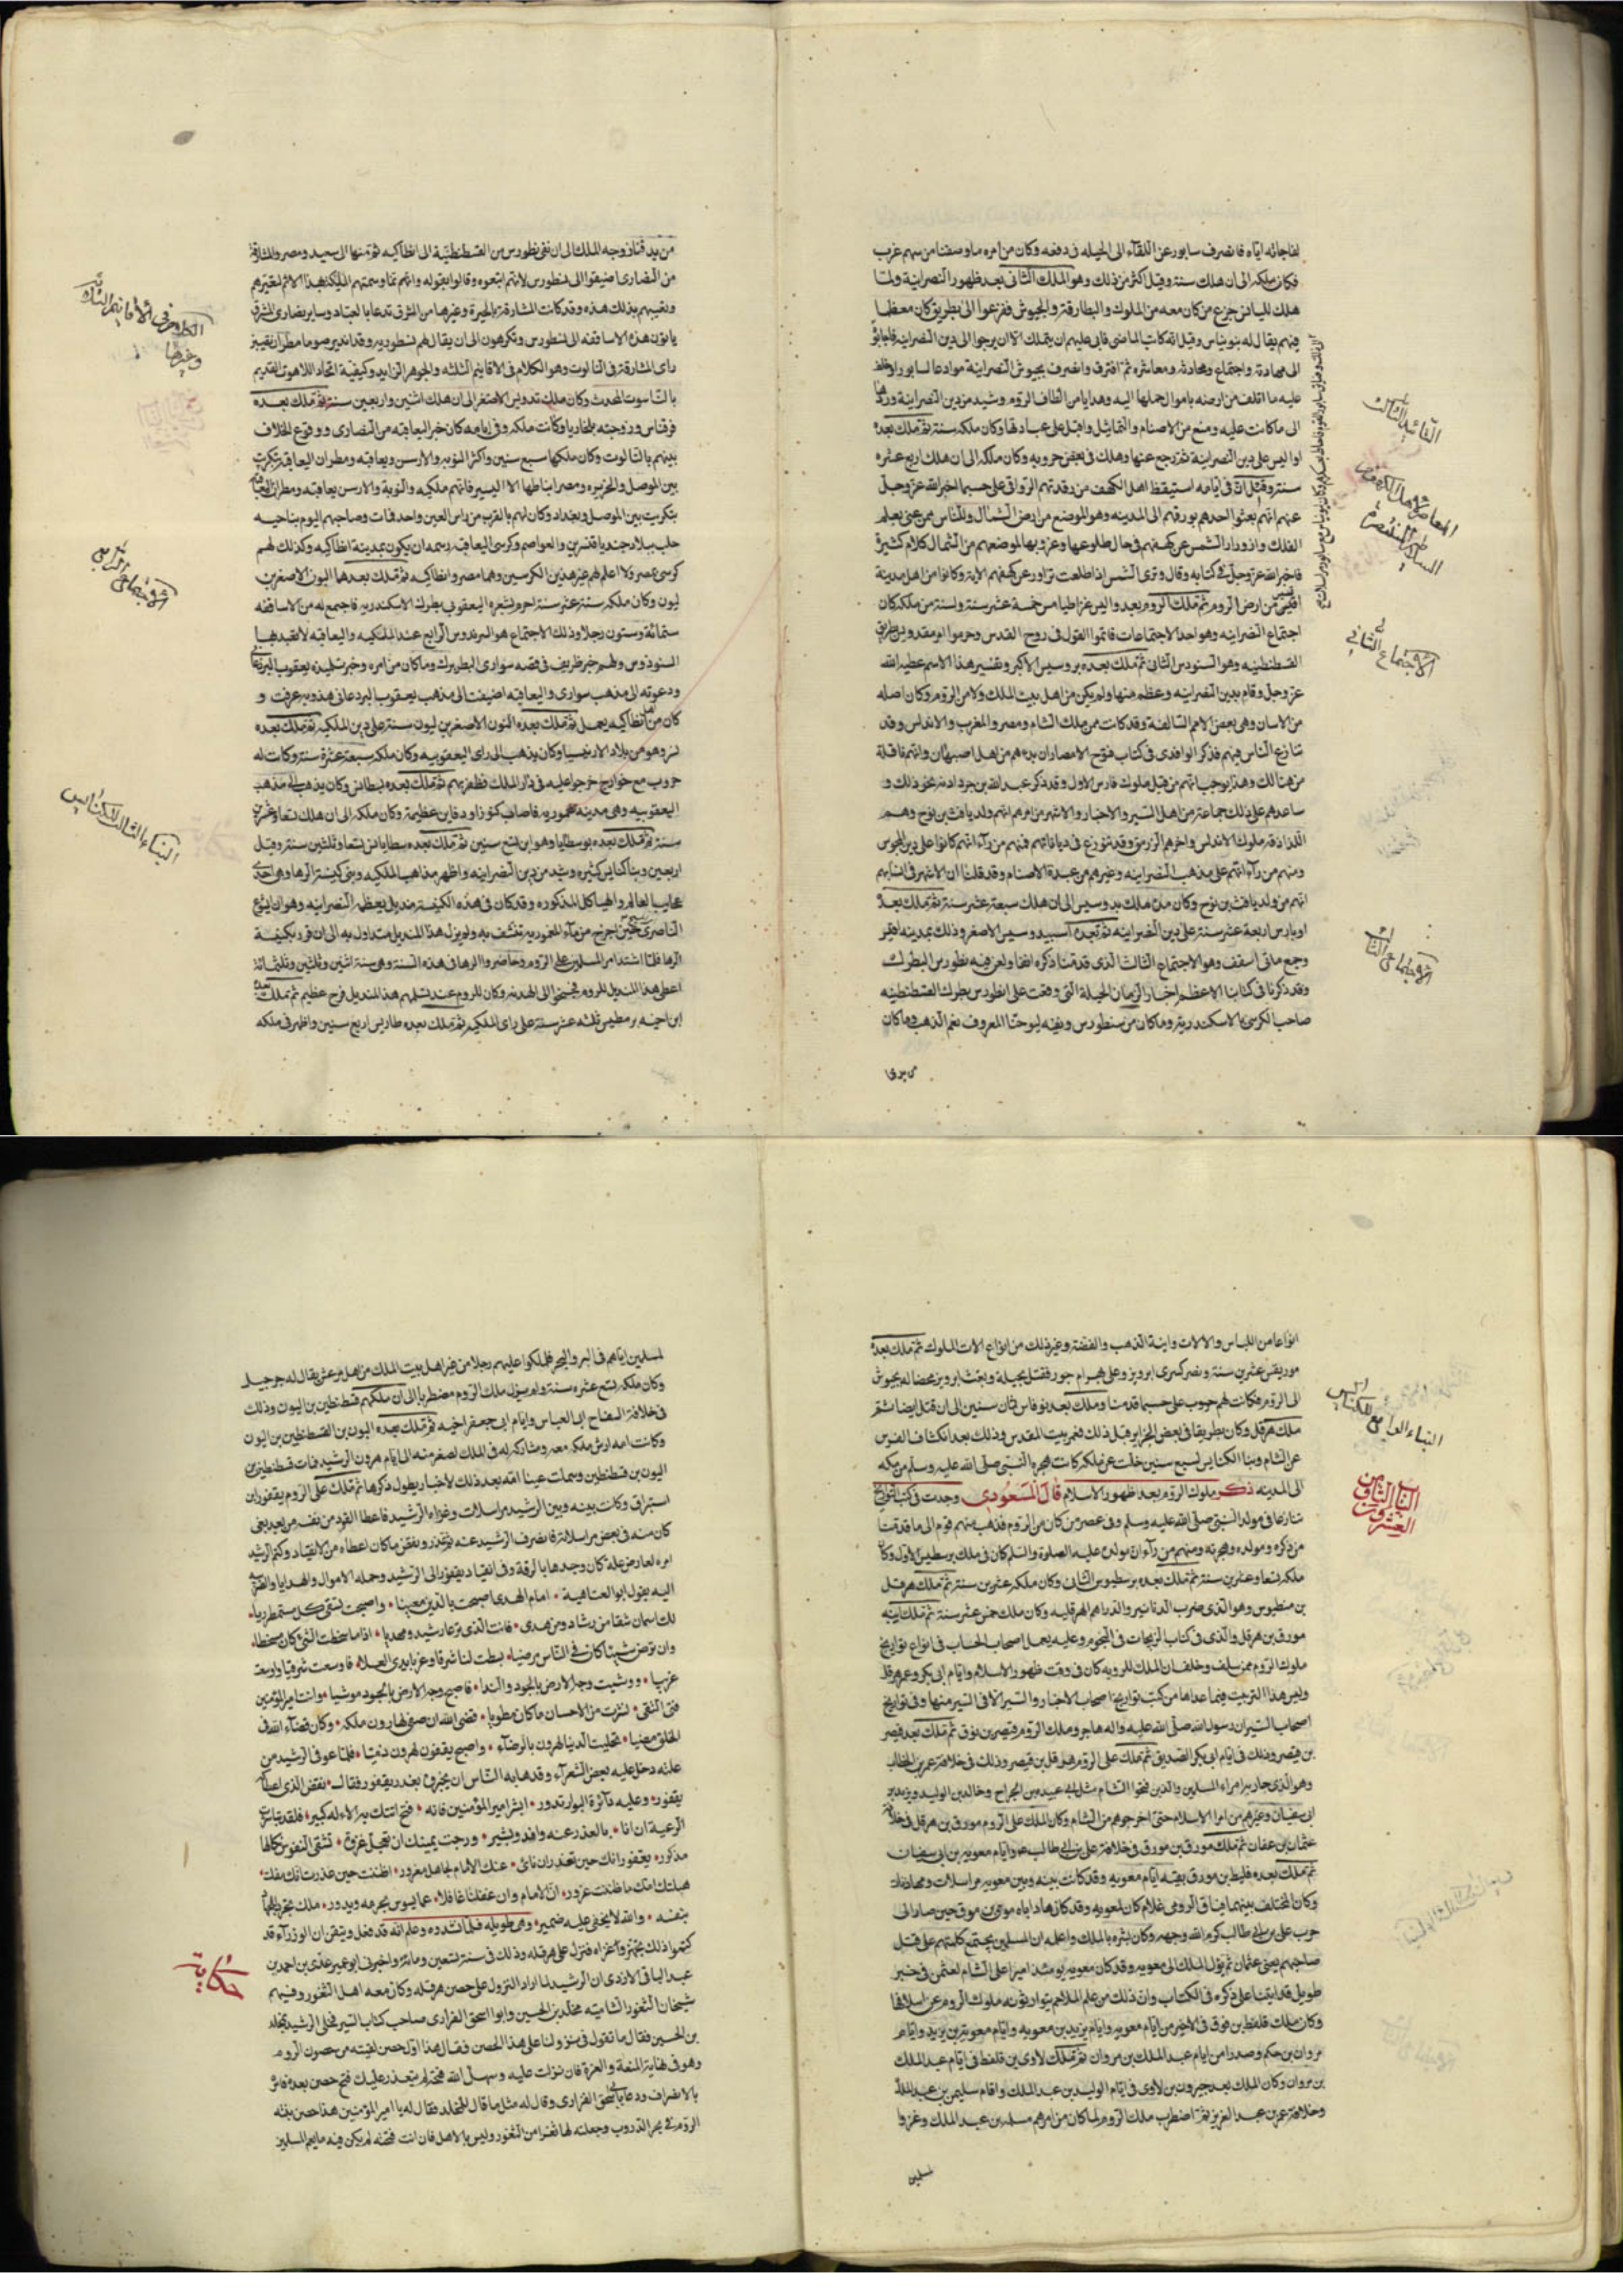 لمفاجأته اياه فانصرف سابور عن اللقاء الى الحيلة فى دفعه وكان من امره ما وصفنا من سهم غرب
فكان ملكه الى ان هلك سنة وقيل اكثر من ذلك وهو الملك الثانى بعد ظهور النصرانية ولما
هلك لليانس جزع من كان معه من الملوك والبطارقة والجيوش ففزعوا الى بطريق كان معظما
فيهم يقال له يونياس وقيل انه كاتب الماضى فابى عليهم ان يتملك الا ان يرجعوا الى دين النصرانية فاجابوه
عليه ما اتلف من ارضه باموال حملها اليه وهدايا من الطاف الروم وشيد من دين النصرانية وردها
الى ما كانت عليه ومنع من الاصنام والتماثيل وقتل على عبادتها وكان ملكه سنة ثم ملك بعده
اواليس على دين النصرانية ثم رجع عنها وهلك فى بعض حروبه وكان ملكه الى ان هلك اربع عشره
سنة وقيل ان فى ايامه استيقظ اهل الكهف من رقدتهم على حسب ما اخبر الله عز وجل
عنهم انهم بعثوا احدهم بورقهم الى المدينه وهو الموضع من ارض الشمال وللناس ممن عنى بعلم
الفلك وازورار الشمس عن كهفهم فى حال طلوعها وغروبها لموضعهم من الشمال كلام كثيرة
فاخبر الله عز وجل فى كتابه وقال وترى الشمس اذا طلعت تزاور عن كهفهم الاية وكانوا من اهل مدينة
افسيس من ارض الروم ثم ملك الروم بعد واليس غراطياس خمسة عشر سنة ولسنة من ملكه كان
اجتماع النصرانيه وهو احد الاجتماعات فاتموا القول فى روح القدس وحرموا مقدونس بطريق
القسطنطينيه وهو السنودس الثانى ثم ملك بعده بروسيس الاكبر وتفسير هذا الاسم عطيه الله
عز وجل وقام بدين النصرانيه وعظم منها ولم يكن من اهل بيت الملك ولا من الروم وكان اصله
من الاسبان وهى بعض الامم السالفة وقد كانت ممن ملك الشام ومصر والمغرب والاندلس وقد
تنازع الناس فيهم فذكر الواقدى فى كتاب فتوح الامصار ان بدءهم من اهل اصبهان وانهم ناقلة
من هنالك وهذا يوجب انهم من قبل ملوك فارس الاول وقد ذكر عبيد الله بن خرداذبه نحو ذلك و
ساعدهم على ذلك جماعة من اهل السير والاخبار والاشهر من امرهم انهم ولد يافث بن نوح وهم
اللذارقه ملوك الاندلس واحدهم لزريق وقد تنوزع فى دياناتهم فمنهم من رأى انهم كانوا على دين المجوس
ومنهم من رأى انهم على مذهب النصرانيه وغيرهم من عبدة الاصنام وقد قلنا ان الاشهر فى انسابهم
انهم من ولد يافث بن نوح وكان مدة ملك بدوسيس الى ان هلك سبعة عشر سنة ثم ملك بعده
اوباريس اربعة عشر سنة على دين النصرانيه ثم بعده
وجمع مائى اسقف وهو الاجتماع الثالث الذى قدمنا ذكره انفا ولعن فيه نسطورس البطرك
وقد ذكرنا فى كتابنا الاعظم اخبار الزمان الحيلة التى وقعت على نسطورس بطرك القسطنطينيه
صاحب الكرسى بالاسكندرية وما كان من نسطورس ونفيه ليوحنا المعروف بفم الذهب وما كان
من يدقيا
التأييد الثالث
المعاصر لاهل الكهف من
الاجتماع الثانى
الاجتماع الثالث
من يدقيا زوجه الملك الى ان نفى نسطورس من القسطنطنيّة الى انطاكيه ثم منها الى سعيد ومصر والمشارقة
من النصارى اضيفوا الى نسطورس لانهم اتبعوه وقالوا بقوله وانهم انما وسمتهم الملكية بهذا الاسم لتعيرهم
وتعيبهم بذلك هذه وقد كانت المشارقة بالحيرة وغيرها من المشرق تدعا بالعباد وساير نصارى المشرق
يابون هذه الاساقفه الى نسطورس ويكرهون الى ان يقال لهم نسطوريه وقد ايد برصوما مطران نصيبين
راى المشارقة فى الثالوث وهو الكلام فى الاقانيم الثلثة والجوهر الواحد وكيفية اتحاد اللاهوت القديم
بالناسوت المحدث وكان ملك تدوسيس الاصغر الى ان هلك اثنين واربعين سنة ثم ملك بعده
مرقناس وزوجته بلخاريا وكانت ملكه وفى ايامه كان خبر اليعاقبه من النصارى ووقوع الخلاف
بينهم بالثالوث وكان ملكها سبع سنين واكثر النوبه والارمن يعاقبه ومطران اليعاقبة بتكريت
بين الموصل والجزيره ومصر اقباطها الا اليسير فانهم ملكيه والنوبة والارمن يعاقبه ومطران اليعاقبة
بتكريت بين الموصل وبغداد وكان لهم بالقرب من راس العين واحد فمات وصاحبهم اليوم بناحيه
حلب ببلاد جند قنسرين والعواصم وكرسى اليعاقبه رسمه ان يكون بمدينة انطاكيه وكذلك لهم
كرسى بمصر ولا اعلم لهم غير هذين الكرسيين وهما مصر وانطاكيه ثم ملك بعدها اليون الاصغر بن
ليون وكان ملكه ستة عشر سنة احرم بشعره اليعقوبى بطرك الاسكندريه فاجتمع له من الاساقفه
ستمائة وستون رجلا وذلك الاجتماع هو السنودس الرابع عند الملكيه واليعاقبه لا تعتد بهذا
السنودس ولهم خبر ظريف فى قصه سوارى البطريرك وما كان من امره وخبر تلميذه يعقوب البردعانى
ودعوته الى مذهب سوارى واليعاقبه اضيفت الى مذهب يعقوب البردعانى هذا وبه عرفت و
كان من اهل انطاكيه يعمل ثم ملك بعده اليون الاصغر بن ليون سنة على دين الملكيه ثم ملك بعده
زنو وهو من بلاد الارمنيسيا وكان يذهب الى راى اليعقوبيه وكان ملكه سبعة عشرة سنة وكانت له
حروب مع خوارج خرجوا عليه فى دار الملك فظفر بهم ثم ملك بعده نسطاس وكان يذهب الى مذهب
اليعقوبيه وهى مدينة عموريه فاصاب كنوزا ودفاين عظيمة وكان ملكه الى ان هلك تسعا وعشرين
سنة ثم ملك بعده يوسطاليا وهو ابن تسع سنين ثم ملك بعده يسطايانس تسعا وثلثين سنة وقيل
اربعين وبنا كنايس كثيره وشيد من دين النصرانيه واظهر مذاهب الملكيه وبنى كنيسة الرها وهى احدى
عجايب العالم والهياكل المذكوره وقد كان فى هذه الكنيسة منديل يعظمه النصرانيه وهو ان يسوع
الناصرى حين اخرج من ماء المعموديه تنشف به ولم يزل هذا المنديل متداول به الى ان قرر بكنيسة
الرها فلما اشتد امر المسلمين على الروم وحاصروا الرها فى هذه السنة وهى سنة اثنين وثلثين وثلثمائة
اعطى هذا المنديل للروم فجنحوا الى الهدنة وكان للروم عند تسلمهم هذا المنديل فرح عظيم ثم ملك بعده
ابن اخيه برمطيس ثلثه عشر سنة على راى الملكيه ثم ملك بعده طاريس اربع سنين واظهر فى ملكه
الكلام فى الاقانيم الثلاثة
وغيرها
الاجتماع الرابع
البناء الثالث للكنائس
انواعا من اللباس والالات وانية الذهب والفضة وغير ذلك من انواع الات الملوك ثم ملك بعده
موريقس عشرين سنة ونصر كسرى ابرويز وعلى بهرام جور فقتل بحيلة وبعث ابرويز غضبا له بجيوش
الى الروم فكانت لهم حروب على حسب ما قدمنا وملك بعده فوقاس ثمان سنين الى ان قتل ايضا ثم
ملك هرقل وكان بطريقا فى بعض الجزاير قبل ذلك فعمر بيت المقدس وذلك بعد انكشاف الفرس
عن الشام وبنا الكنايس لسبع سنين خلت من ملكه كانت هجره النبى صلى الله عليه وسلم من مكه
الى المدينه ذكر ملوك الروم بعد ظهور الاسلام قال المسعودى وجدت فى كتب التواريخ
تنازعا فى مولد النبى صلى الله عليه وسلم وفى عصر من كان من الروم فذهب منهم قوم الى ما قدمنا
من ذكره ومولده وهجرته ومنهم من رأى ان مولده عليه الصلوة والسلم كان فى ملك يرسطينس الاول وكان
ملكه تسعا وعشرين سنة ثم ملك بعده يرسطيوس الثانى وكان ملكه عشرين سنة ثم ملك هرقل
بن منطيوس وهو الذى ضرب الدنانير والدراهم الهرقليه وكان ملك خمس عشر سنة ثم ملك ابنه
مورق بن هرقل والذى فى كتاب الزيجات فى النجوم وعليه يعمل اصحاب الحساب فى انواع تواريخ
ملوك الروم ممن سلف وخلف ان الملك للروم كان فى وقت ظهور الاسلام وايام ابى بكر وعمر هرقل
وليس هذا الترتيب فيما عداها من كتب تواريخ اصحاب الاخبار والسير الا فى اليسير منها وفى تواريخ
اصحاب السير ان رسول الله صلى الله عليه واله هاجر وملك الروم قيصر بن فوق ثم ملك بعده قيصر
بن قيصر وذلك فى ايام ابى بكر الصديق ثم ملك على الروم هرقل بن قيصر وذلك فى خلافة عمر بن الخطاب
وهو الذى حاربه امراء المسلمين والذين فتحوا الشام مثل ابى عبيده بن الجراح وخالد بن الوليد ويزيد بن
ابى سفيان وغيرهم من امرا الاسلام حتى اخرجوهم من الشام وكان الملك على الروم مورق بن هرقل فى خلافة
عثمان بن عفان ثم ملك مورق بن مورق فى خلافة على بن ابى طالب وايام معويه بن ابى سفيان
ثم ملك بعده قلفط بن مورق بقيه ايام معويه وقد كانت بينه وبين معويه مراسلات ومهادنات
وكان المختلف بينهما فناق الرومى غلام كان لمعويه وقد كان هادا اباه مورق بن مورق حين صار الى
حرب على بن ابى طالب كرم الله وجهه وكان بشره بالملك واعلمه ان المسلمين يجتمع كلمتهم على قتل
صاحبهم يعنى عثمان ثم يؤل الملك الى معويه وقد كان معويه يومئذ اميرا على الشام لعثمن فى خبر
طويل قد اتينا على ذكره فى الكتاب وان ذلك من علم الملاحم يتوارثونه ملوك الروم عن اسلافها
وكان ملك قلفط بن فوق فى الاخير من ايام معويه وايام يزيد بن معويه وايام معوية بن يزيد وايام
مروان بن حكم وصدرا من ايام عبد الملك بن مروان ثم ملك لاوى بن قلفط فى ايام عبد الملك
بن مروان وكان الملك بعد جيرون بن لاوى فى ايام الوليد بن عبد الملك وايام سليمن بن عبد الملك
وخلافة عمر بن عبد العزيز ثم اضطرب ملك الروم لما كان من امرهم مسلمه بن عبد الملك وغزوا
لمسلمين
البناء الرابع للكنايس
الباب الثامن
العشرون
لمسلمين اياهم فى البر والبحر فملكوا عليهم رجلا من غير اهل بيت الملك من اهل مرعش يقال له جرجيس
وكان ملكه تسع عشره سنة ولم يزل ملك الروم مضطربا الى ان ملكهم قسطنطين بن اليون وذلك
فى خلافة السفاح ابى العباس وايام ابى جعفر اخيه ثم ملك بعده اليون بن القسطنطين بن اليون
وكانت امه ارينى ملكه معه ومشاركه له فى الملك لصغر سنه الى ايام هرون الرشيد فمات قسطنطين بن
اليون بن قسطنطين وسملت عينا امه بعد ذلك لاخبار يطول ذكرها ثم ملك على الروم يقفور بن
استبراق وكانت بينه وبين الرشيد مراسلات وغزاه الرشيد فاعطا القود من نفسه من بعد بغى
كان منه فى بعض مراسلاته فانصرف الرشيد عنه ثم غدر ونقض ما كان اعطاه من الانقياد وكتم الرشيد
امره لعارض علة كان وجدها بالرقة وفى انقياد يقفور الى الرشيد وحمله الاموال والهدايا والضريبة
اليه يقول ابو العتاهية • امام الهدى اصبحت بالدين معنيا • واصبحت تسقى كل مستمطر ريا •
لك اسمان شقا من رشاد ومن هدى • فانت الذى تدعا رشيدا ومهديا • اذا ما سخطت الشئ كان مسخطا •
وان ترض شيئا كان فى الناس مرضيا • بسطت لنا شرقا وغربا يد العلا • فاوسعت شرقيا واوسعت
غربيا • ووشيت وجه الارض بالجود والندا • فاصبح وجه الارض بالجود موشيا • وانت امير المؤمنين
فتى التقى • نشرت من الاحسان ما كان مطويا • قضى الله ان صفى لهارون ملكه • وكان قضاء الله فى
الخلق مقضيا • تحلبت الدنيا لهرون بالرضاء • واصبح يقفور لهرون ذميا • فلما عوفى الرشيد من
علته دخل عليه بعض الشعراء وقد هابه الناس ان يخبروه بغدر يقفور فقال • نقض الذى اعطاكه
يقفور • وعليه دائرة البوار تدور • ابشر امير المؤمنين فانه • فتح اتتك به الاله كبير • فلقد تباشرت
الرعية ان اتا • بالغدر عنه وافد وبشير • ورجت يمينك ان تعجل غزوة • تشفى النفوس نكالها
مذكور • يقفور انك حين تغدر ان ناى • عنك الامام لجاهل مغرور • اظننت حين غدرت انك مفلت •
هبلتك امك ما ظننت غرور • ان الامام وان غفلنا غافلا • عما يسوس بحزمه ويدير • ملك تجرد للجهاد
بنفسه • والله لا يخفى عليه ضمير • وهى طويله فلما انشده وعلم انه قد فعل وتيقن ان الوزرآء قد
كتموا ذلك تجهز وغزاه فنزل على هرقله وذلك فى سنة تسعين ومائه واخبرنى ابو عمير عدى بن احمد بن
عبد الباقى الازدى ان الرشيد لما اراد النزول على حصن هرقله وكان معه اهل الثغور وفيهم
شيخان الثغور الشاميه مخلد بن الحسين وابو اسحق الفزارى صاحب كتاب السير فخلى الرشيد بمخلد
بن الحسين فقال ما تقول فى نزولنا على هذا الحصن فقال هذا اول حصن لقيته من حصون الروم
وهو فى نهاية المنعة والعزة فان نزلت عليه وسهل الله فتحه لم يتعذر عليك فتح حصن بعده فامره
بالانصراف ودعا بابى اسحق الفزارى وقال له مثل ما قال لمخلد فقال له يا امير المؤمنين هذا حصن بنته
الروم فى نحر الدروب وجعلته لها ثغرا من الثغور وليس بالاهل فان انت فتحته لم يكن فيه ما يعم المسلمين
حكاية